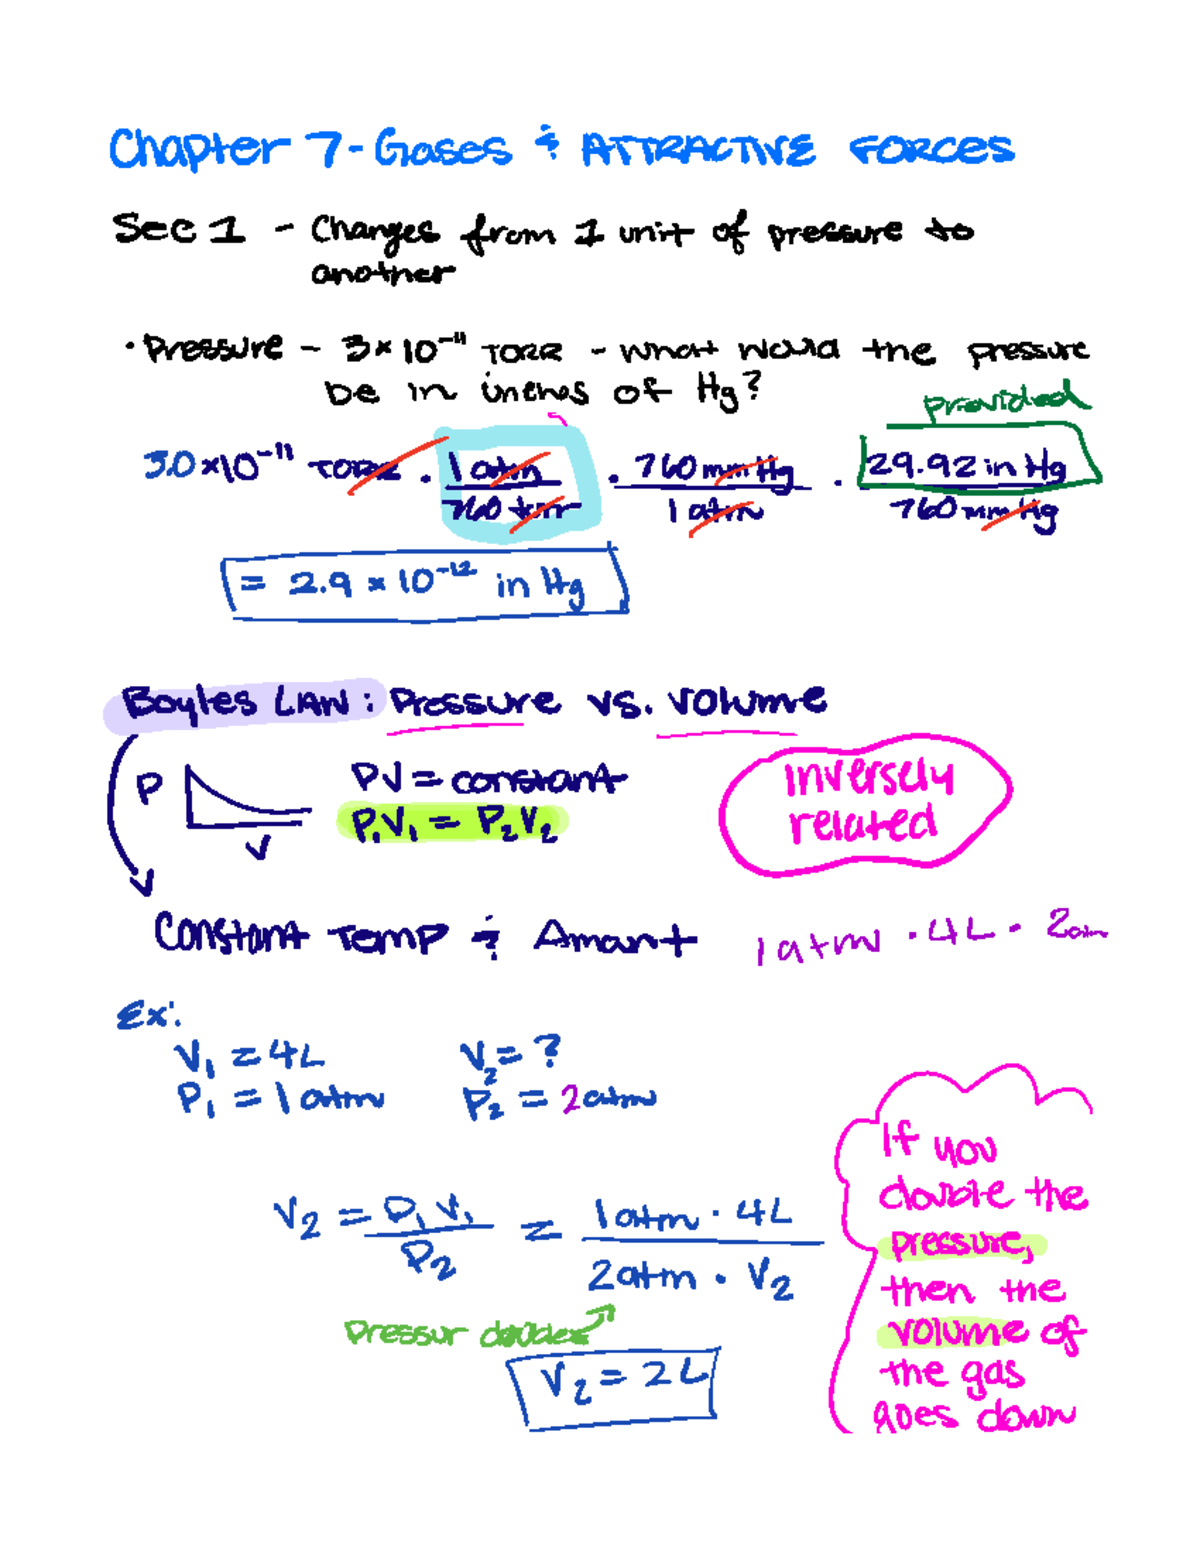 Chapter 7 - Gases & ATTRACTIVE FORCES
Sec 1 - Changes from 1 unit of pressure to
another
• Pressure - 3×10⁻¹¹ TORR - what would the pressure
be in inches of Hg?
provided
3.0×10⁻¹¹ TORR · 1 atm / 760 torr · 760 mm Hg / 1 atm · 29.92 in Hg / 760 mm Hg
= 2.9 × 10⁻¹² in Hg
Boyles LAW: Pressure vs. volume
P
V
PV = constant
P₁V₁ = P₂V₂
inversely
related
Constant Temp & Amant
1 atm · 4L · 2atm
Ex:
V₁ = 4L V₂ = ?
P₁ = 1 atm P₂ = 2 atm
V₂ = P₁V₁ / P₂ = 1 atm · 4L / 2 atm · V₂
Pressur doubles
V₂ = 2L
If you
double the
pressure,
then the
volume of
the gas
goes down